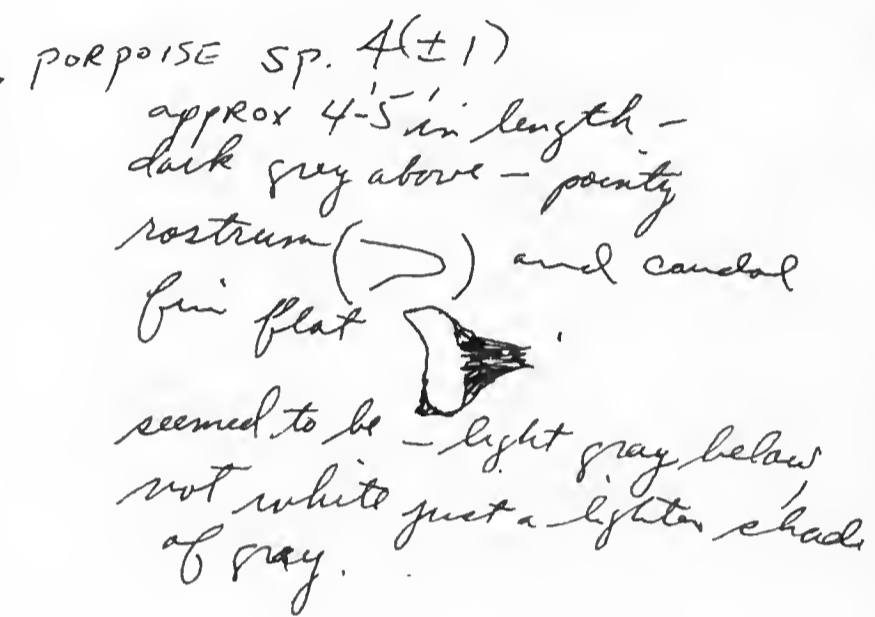 PORPOISE sp. 4(±1)
approx 4'-5' in length -
dark grey above - pointy
rostrum ( ) and caudal
fin flat
seemed to be - light gray below,
not white just a lighter shade
of gray.